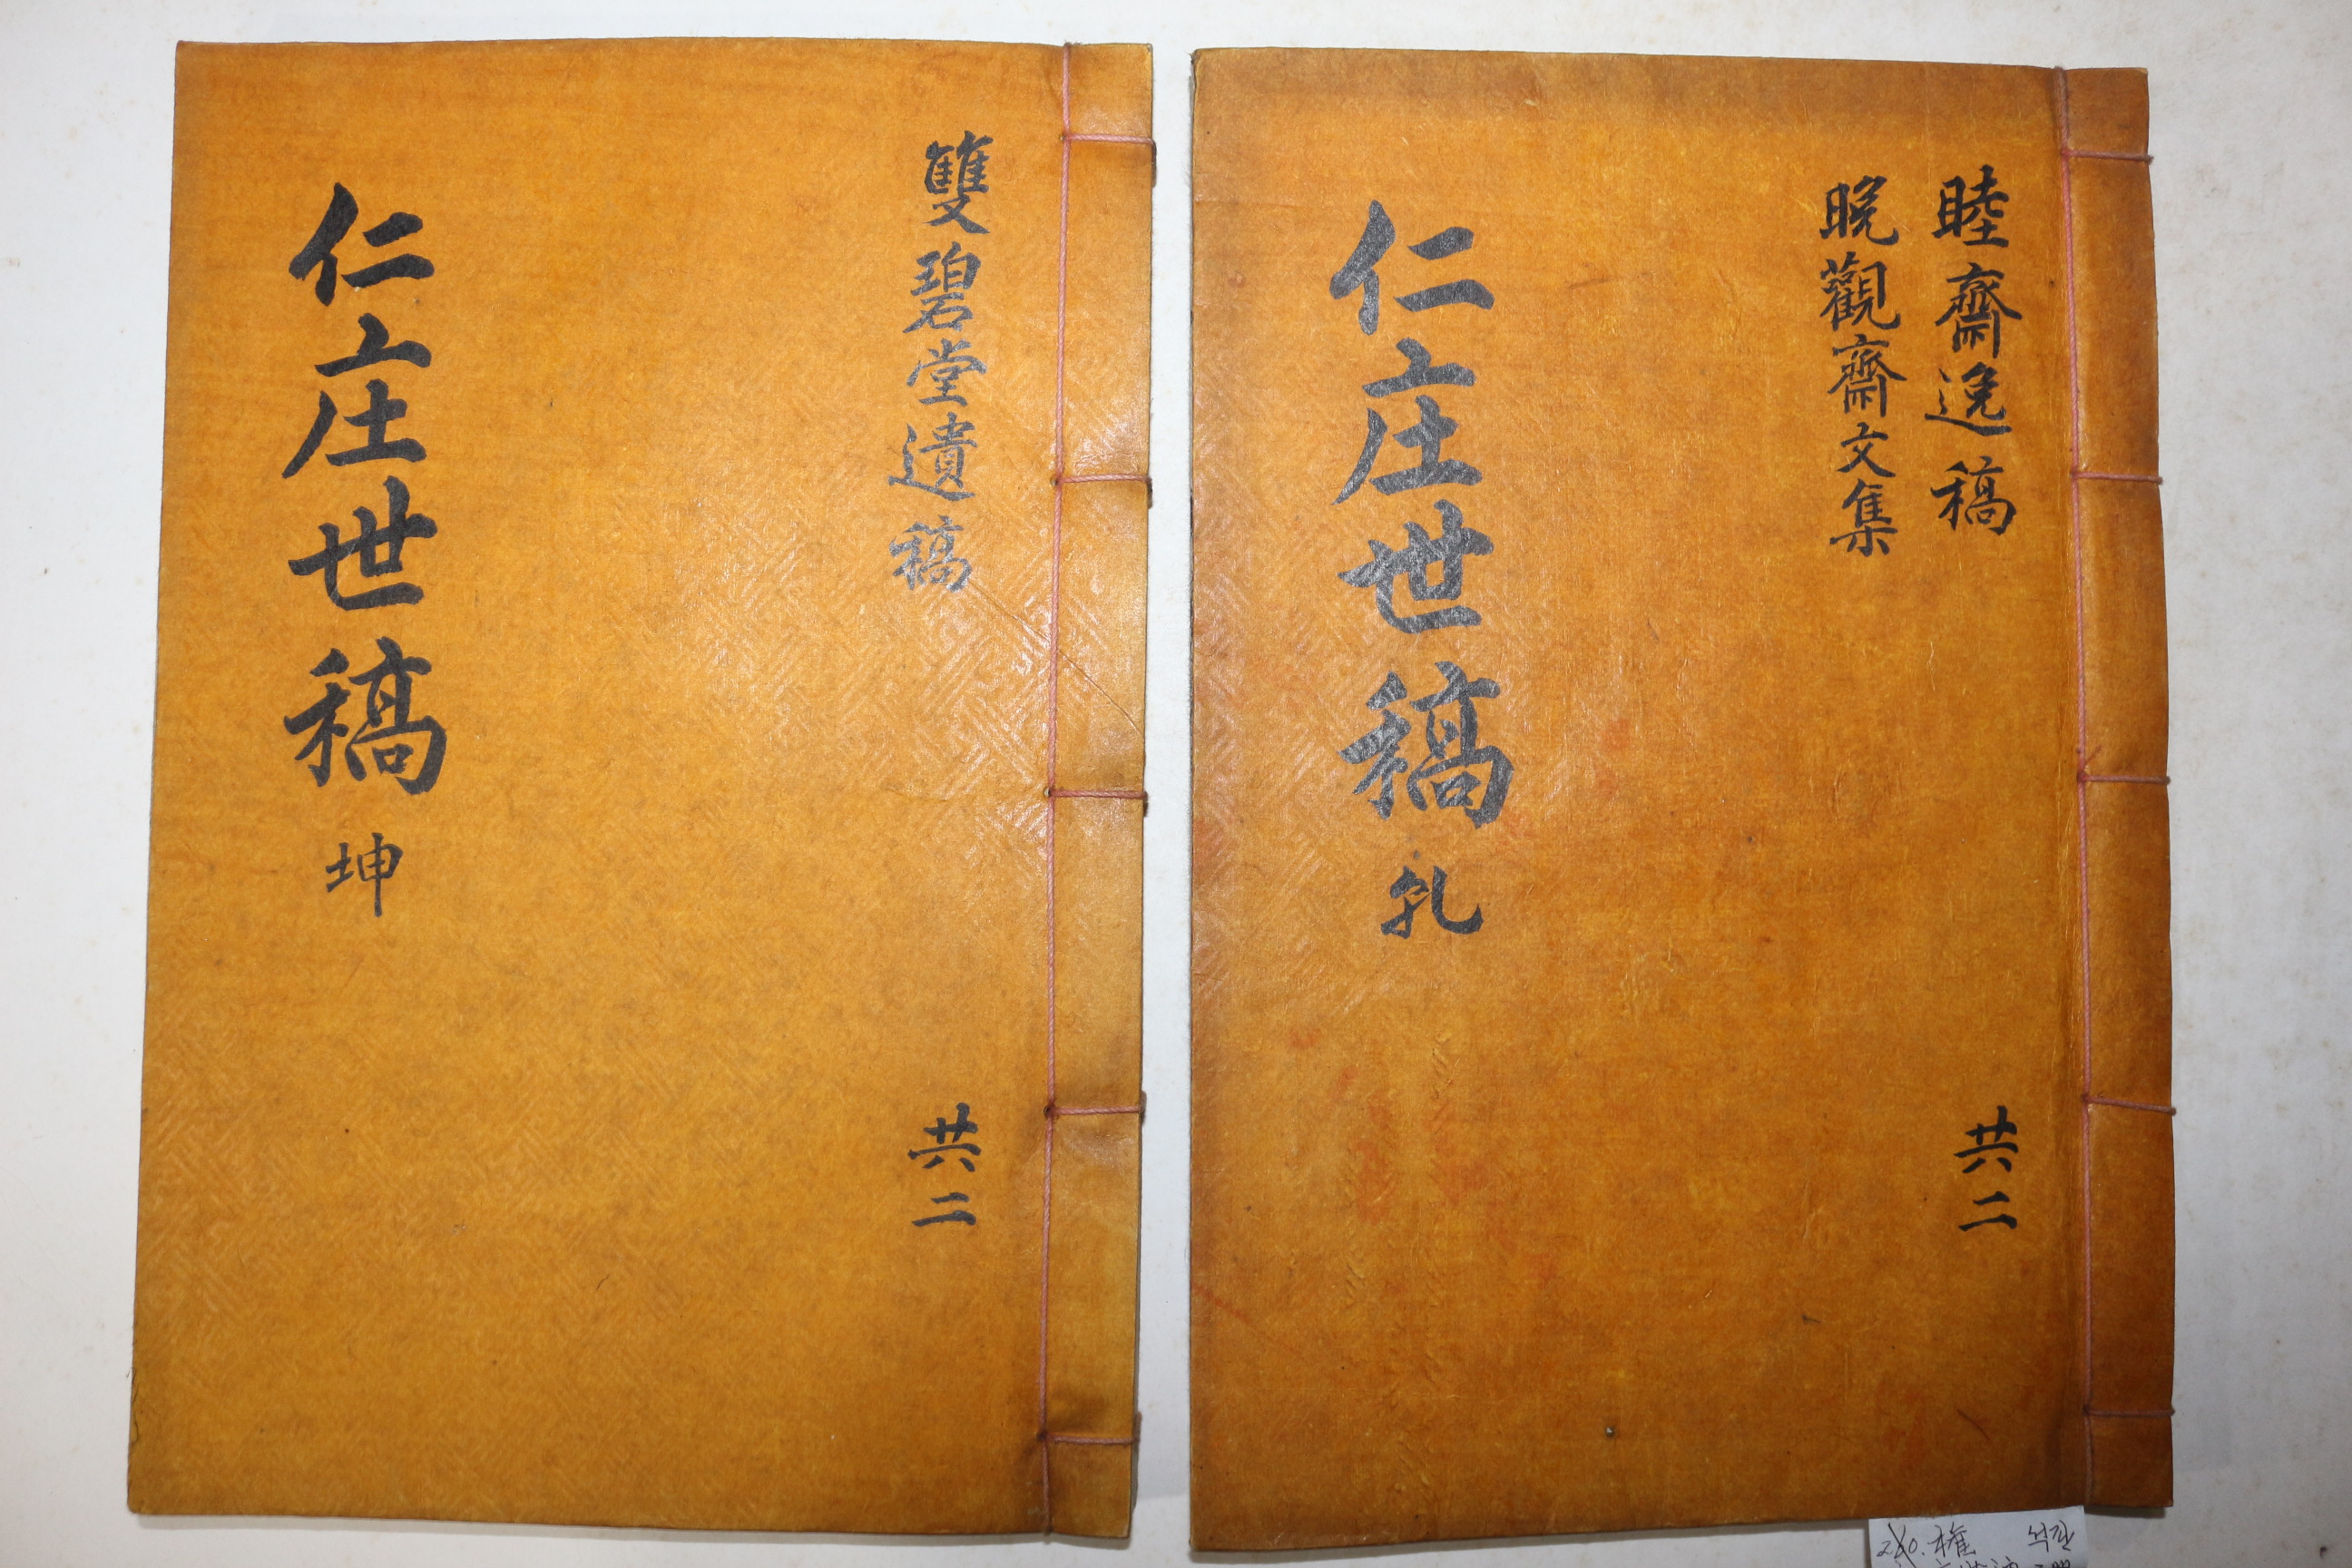 睦齋逸稿
晚觀齋文集
仁庄世稿 乹
共二
雙碧堂遺稿
仁庄世稿 坤
共二